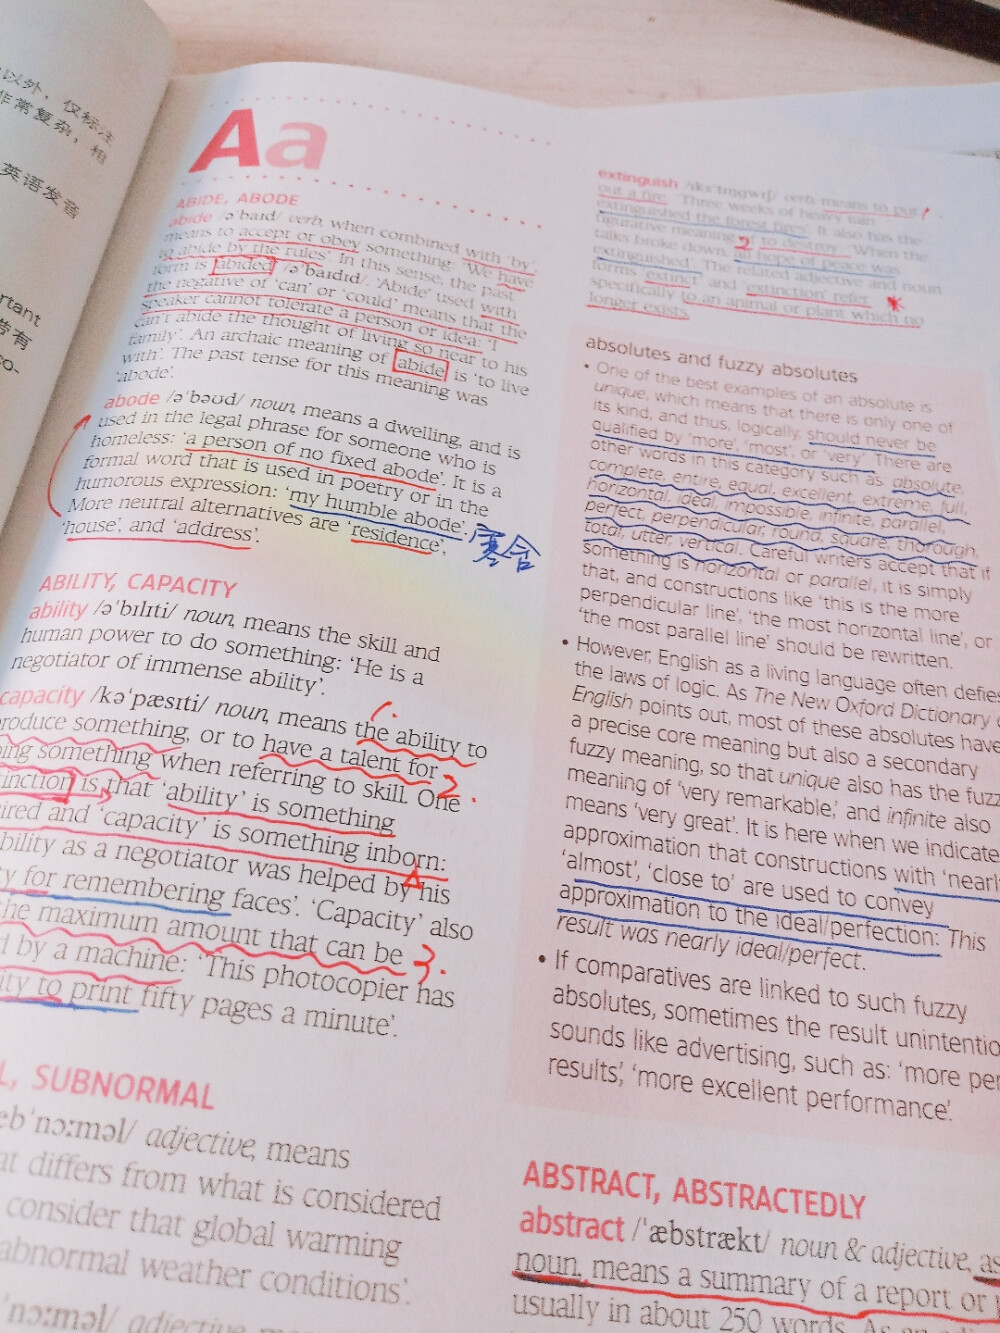 以外，仅标注
非常复杂，相
英语发音
rtant
带有
co-
Aa
ABIDE, ABODE
abide /əˈbaɪd/ verb, when combined with ‘by’,
means to accept or obey something: ‘We have
to abide by the rules’. In this sense, the past
form is abided /əˈbaɪdɪd/. ‘Abide’ used with
the negative of ‘can’ or ‘could’ means that the
speaker cannot tolerate a person or idea: ‘I
can’t abide the thought of living so near to his
family’. An archaic meaning of abide is ‘to live
with’. The past tense for this meaning was
‘abode’.
abode /əˈbəʊd/ noun, means a dwelling, and is
used in the legal phrase for someone who is
homeless: ‘a person of no fixed abode’. It is a
formal word that is used in poetry or in the
humorous expression: ‘my humble abode’. 寒舍
More neutral alternatives are ‘residence’,
‘house’, and ‘address’.
ABILITY, CAPACITY
ability /əˈbɪlɪti/ noun, means the skill and
human power to do something: ‘He is a
negotiator of immense ability’.
capacity /kəˈpæsɪti/ noun, means 1. the ability to
produce something, or to have a talent for 2.
ing something when referring to skill. One
inction is that ‘ability’ is something
ired and ‘capacity’ is something inborn:
bility as a negotiator was helped by his
ty for remembering faces’. ‘Capacity’ also
the maximum amount that can be 3.
d by a machine: ‘This photocopier has
ity to print fifty pages a minute’.
L, SUBNORMAL
æbˈnɔːməl/ adjective, means
at differs from what is considered
consider that global warming
abnormal weather conditions’.
ˈnɔːməl/ adjective
extinguish /ɪksˈtɪŋgwɪʃ/ verb, means to put 1
out a fire: ‘Three weeks of heavy rain
extinguished the forest fires’. It also has the
figurative meaning 2 ‘to destroy’: ‘When the
talks broke down, all hope of peace was
extinguished’. The related adjective and noun
forms ‘extinct’ and ‘extinction’ refer
specifically to an animal or plant which no
longer exists.
absolutes and fuzzy absolutes
• One of the best examples of an absolute is
unique, which means that there is only one of
its kind, and thus, logically, should never be
qualified by ‘more’, ‘most’, or ‘very’. There are
other words in this category such as: absolute,
complete, entire, equal, excellent, extreme, full,
horizontal, ideal, impossible, infinite, parallel,
perfect, perpendicular, round, square, thorough,
total, utter, vertical. Careful writers accept that if
something is horizontal or parallel, it is simply
that, and constructions like ‘this is the more
perpendicular line’, ‘the most horizontal line’, or
‘the most parallel line’ should be rewritten.
• However, English as a living language often defies
the laws of logic. As The New Oxford Dictionary o
English points out, most of these absolutes have
a precise core meaning but also a secondary
fuzzy meaning, so that unique also has the fuzz
meaning of ‘very remarkable’, and infinite also
means ‘very great’. It is here when we indicate
approximation that constructions with ‘nearl
‘almost’, ‘close to’ are used to convey
approximation to the ideal/perfection: This
result was nearly ideal/perfect.
• If comparatives are linked to such fuzzy
absolutes, sometimes the result unintentio
sounds like advertising, such as: ‘more per
results’, ‘more excellent performance’.
ABSTRACT, ABSTRACTEDLY
abstract /ˈæbstrækt/ noun & adjective, as
noun, means a summary of a report or
usually in about 250 words. As